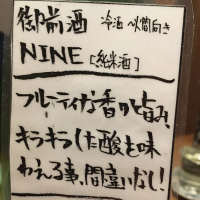 御前酒 冷酒〜燗向き
NINE [純米酒]
フルーティな香りと旨み、
キラキラした酸を味
わえる事、間違いなし!